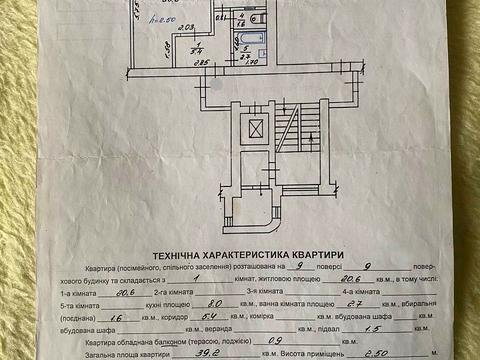 h=2.50
5.75
2.03
0.81
4
1.6
1
5.4
1.50
2.85
5
2.7
1.70
ТЕХНІЧНА ХАРАКТЕРИСТИКА КВАРТИРИ
Квартира (посімейного, спільного заселення) розташована на 9 поверсі 9 повер-
хового будинку та складається з 1 кімнат, житловою площею 20.6 кв.м, в тому числі:
1-а кімната 20,6 кв.м 2-га кімната кв.м 3-я кімната кв.м 4-а кімната кв.м
5-та кімната кв.м, кухні площею 8.0 кв.м, ванна кімната 2.7 кв.м, вбиральня
(поєднана) 1.6 кв.м, коридор 5.4 кв.м, комірка кв.м, вбудована шафа кв.м
вбудована шафа кв.м, веранда кв.м, підвал 1.5 кв.м.
Квартира обладнана балконом (терасою, лоджією) 0.9 кв.м.
Загальна площа квартири 39,2 кв.м. Висота приміщень 2.50 м.